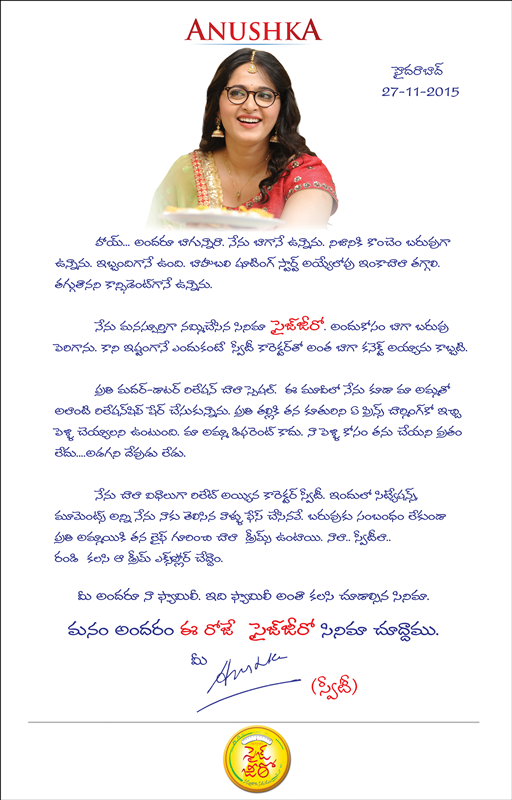 ANUSHKA
హైదరాబాద్
27-11-2015
హాయ్... అందరూ బాగున్నారా. నేను బాగానే ఉన్నాను. నిజానికి కొంచెం బరువుగా
ఉన్నాను. ఇబ్బందిగానే ఉంది. బాహుబలి షూటింగ్ స్టార్ట్ అయ్యేలోపు ఇంకాచాలా తగ్గాలి.
తగ్గుతానని కాన్ఫిడెంట్‌గానే ఉన్నాను.
నేను మనస్ఫూర్తిగా నమ్మిచేసిన సినిమా సైజ్‌జీరో. అందుకోసం బాగా బరువు
పెరిగాను. కాని ఇష్టంగానే ఎందుకంటే స్వీటీ కారెక్టర్‌తో అంత బాగా కనెక్ట్ అయ్యాను కాబట్టి.
ప్రతి మదర్-డాటర్ రిలేషన్ చాలా స్పెషల్. ఈ మూవీలో నేను కూడా మా అమ్మతో
అలాంటి రిలేషన్‌షిప్ షేర్ చేసుకున్నాను. ప్రతి తల్లికి తన కూతురిని ఏ ప్రిన్స్ చార్మింగ్‌కో ఇచ్చి
పెళ్లి చెయ్యాలని ఉంటుంది. మా అమ్మా డిఫరెంట్ కాదు. నా పెళ్లి కోసం తను చేయని వ్రతం
లేదు....అడగని దేవుడు లేడు.
నేను చాలా విధాలుగా రిలేట్ అయ్యిన కారెక్టర్ స్వీటీ. ఇందులో సిట్యుషన్స్,
మూమెంట్స్ అన్ని నేను నాకు తెలిసిన వాళ్ళు ఫేస్ చేసినవే. బరువుకు సంబంధం లేకుండా
ప్రతి అమ్మాయికి తన లైఫ్ గూరించి చాలా డ్రీమ్స్ ఉంటాయి. నాలా.. స్వీటీలా..
రండి కలసి ఆ డ్రీమ్ ఎక్స్‌ప్లోర్ చేద్దాం.
మీ అందరూ నా ఫ్యామిలీ. ఇది ఫ్యామిలీ అంతా కలసి చూడాల్సిన సినిమా.
మనం అందరం ఈ రోజే సైజ్‌జీరో సినిమా చూద్దాము.
మీ
Anushka
(స్వీటీ)
సైజ్
జీరో